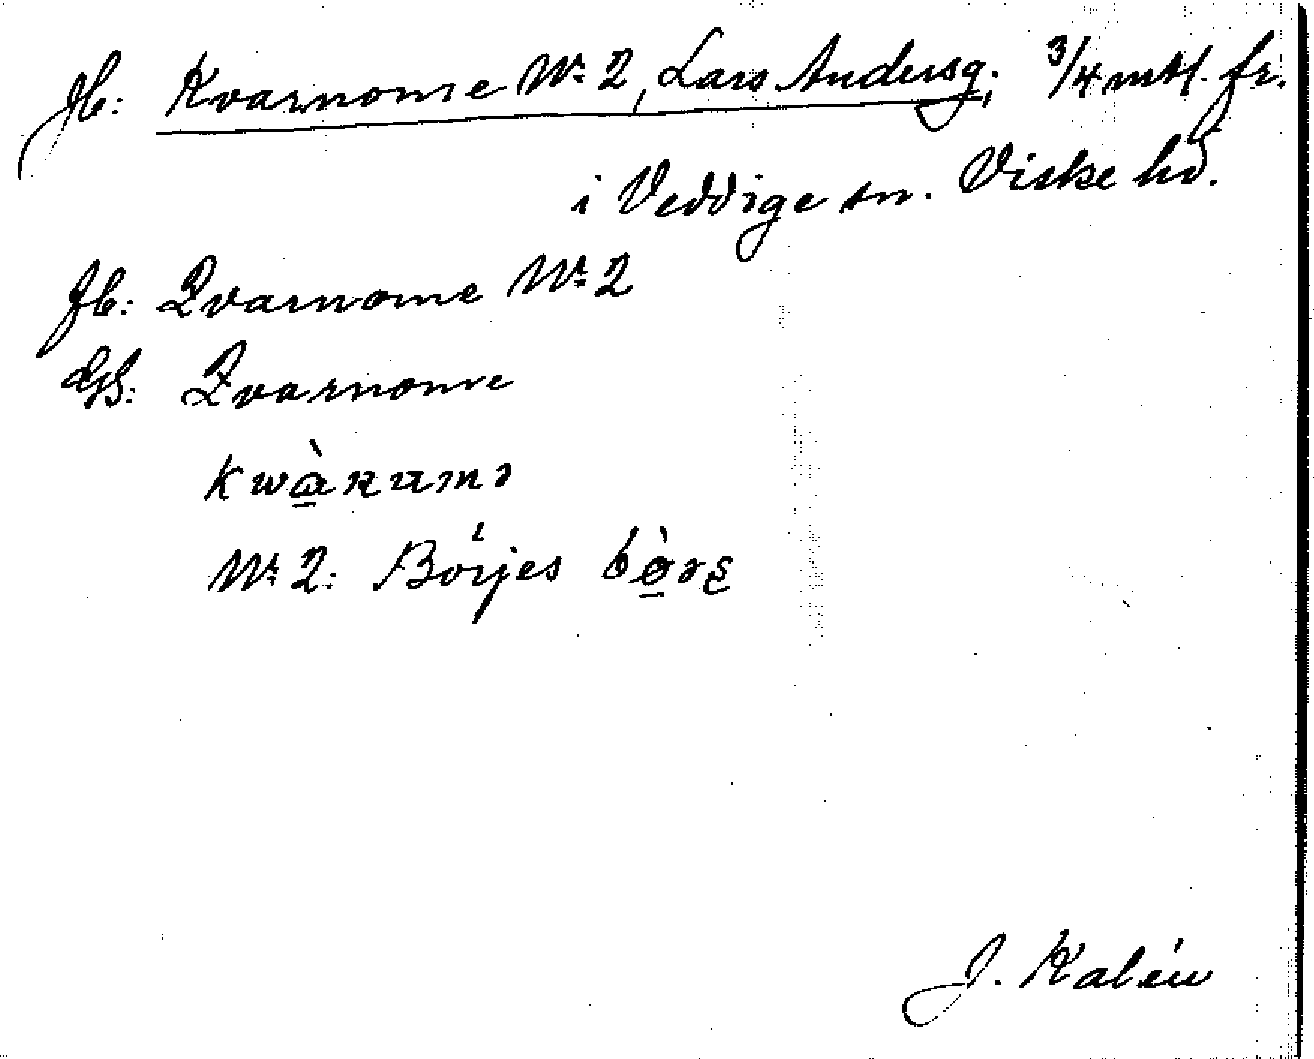 Jb: Kvarnome Nr. 2, Lars Andersg. 3/4 mtl. fr.
i Veddige sn. Viske hd.
Jb: Qvarnome Nr. 2
GS: Qvarnome
Nr. 2: Börjes
J. Kalén